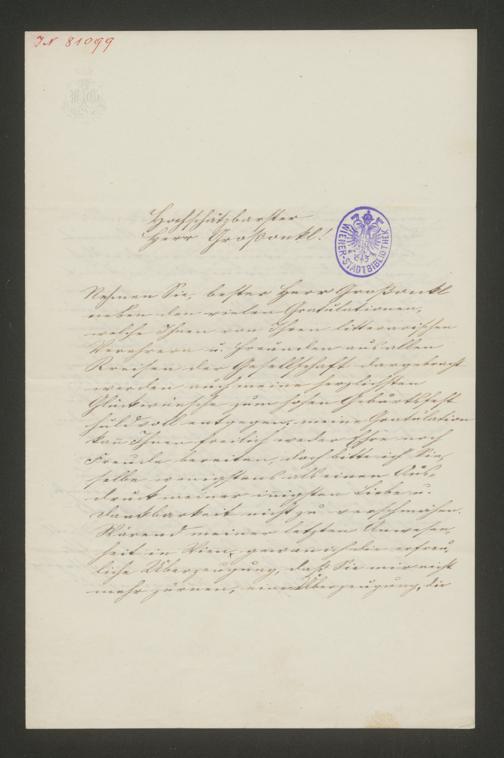 IN 81099
Hochschätzbarster
Herr Großonkl!
WIENER-STADTBIBLIOTHEK
Nehmen Sie, bester Herr Großonkl
neben den vielen Gratulationen,
welche Ihnen von Ihren litterarischen
Verehrern u. Freunden aus allen
Kreisen der Gesellschaft dargebracht
werden auch meine herzlichsten
Glückwünsche zum hohen Geburtsfest
huldvoll entgegen, meine Gratulation
kan Ihnen freilich weder Ehre noch
Freude bereiten, doch bitte ich Sie,
selbe wenigstens als einen Aus-
druck meiner inigsten Liebe u.
Dankbarkeit nicht zu verschmähen.
Wärend meiner letzten Anwesen-
heit in Wien, gewan ich die erfreu-
liche Überzeugung, daß Sie mir nicht
mehr zürnen, eine Überzeugung, die